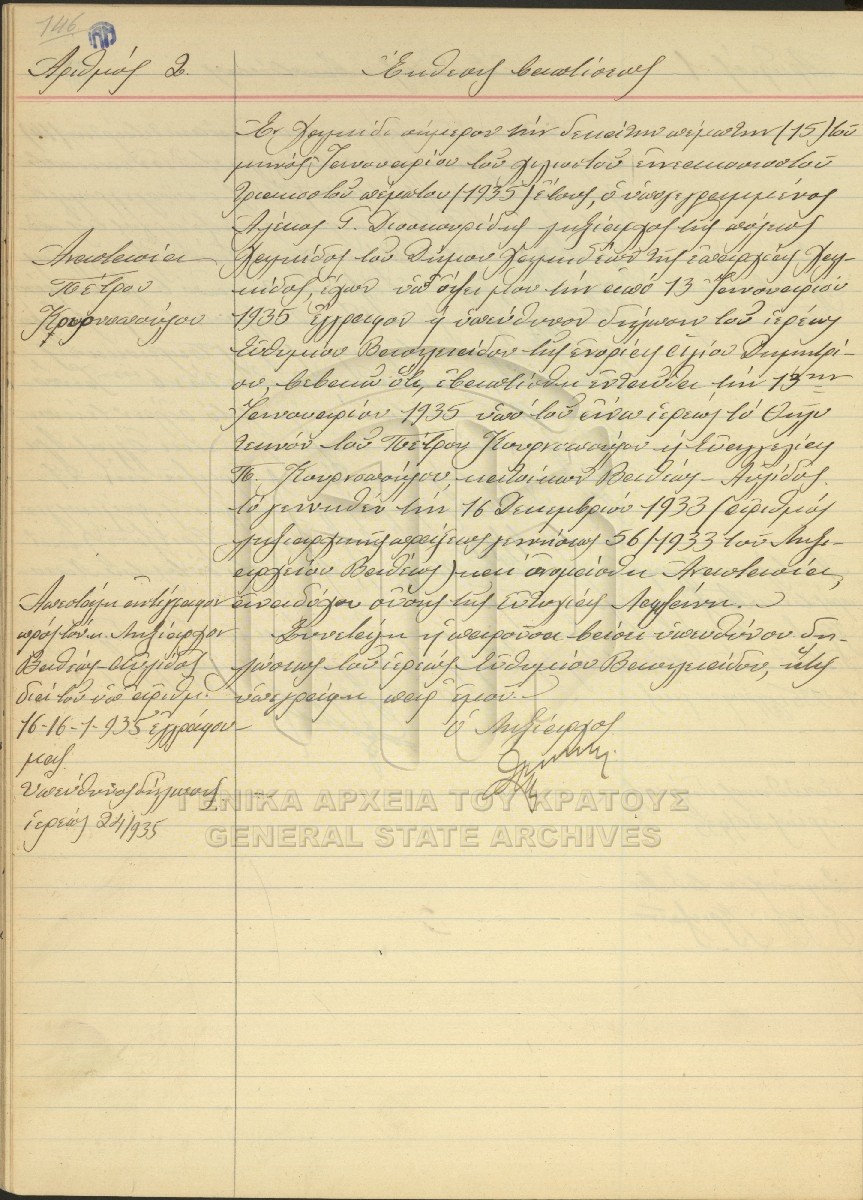 146
Αριθμός 2.
Έκθεσις βαπτίσεως
Εν Χαλκίδι σήμερον την δεκάτην πέμπτην (15) του
μηνός Ιανουαρίου του χιλιοστού εννεακοσιοστού
τριακοστού πέμπτου (1935) έτους, ο υπογεγραμμένος
Αλέκος Γ. Διοσκουρίδης ληξίαρχος της πόλεως
Χαλκίδος του Δήμου Χαλκιδέων της επαρχίας Χαλ-
κίδος, έχων υπ' όψει μου την από 13 Ιανουαρίου
1935 έγγραφον υπεύθυνον δήλωσιν του ιερέως
Ευθυμίου Βασιλειάδου της ενορίας Αγίου Δημητρί-
ου, βεβαιώ ότι, εβαπτίσθη ενταύθα την 13ην
Ιανουαρίου 1935 υπό του άνω ιερέως το θήλυ
τέκνον του Πέτρου και Ευαγγελίας
Π. κατοίκων Βαθέως - Αυλίδος.
το γεννηθέν την 16 Δεκεμβρίου 1933 (αριθμός
ληξιαρχικής πράξεως γεννήσεως 56/1933 του Ληξι-
αρχείου Βαθέως) και ωνομάσθη Αναστασία,
αναδόχου ούσης της Ευτυχίας
Συνετάγη η παρούσα βάσει υπευθύνου δη-
λώσεως του ιερέως Ευθυμίου Βασιλειάδου, ήτις
υπεγράφη παρ' εμού.
Ο Ληξίαρχος
Αναστασία
Πέτρου
Απεστάλη αντίγραφον
προς τον κ. Ληξίαρχον
Βαθέως-Αυλίδος
διά του υπ' αριθμ.
16-16-1-935 εγγράφου
μας.
Υπεύθυνος δήλωσις
ιερέως 24/935
ΓΕΝΙΚΑ ΑΡΧΕΙΑ ΤΟΥ ΚΡΑΤΟΥΣ
GENERAL STATE ARCHIVES